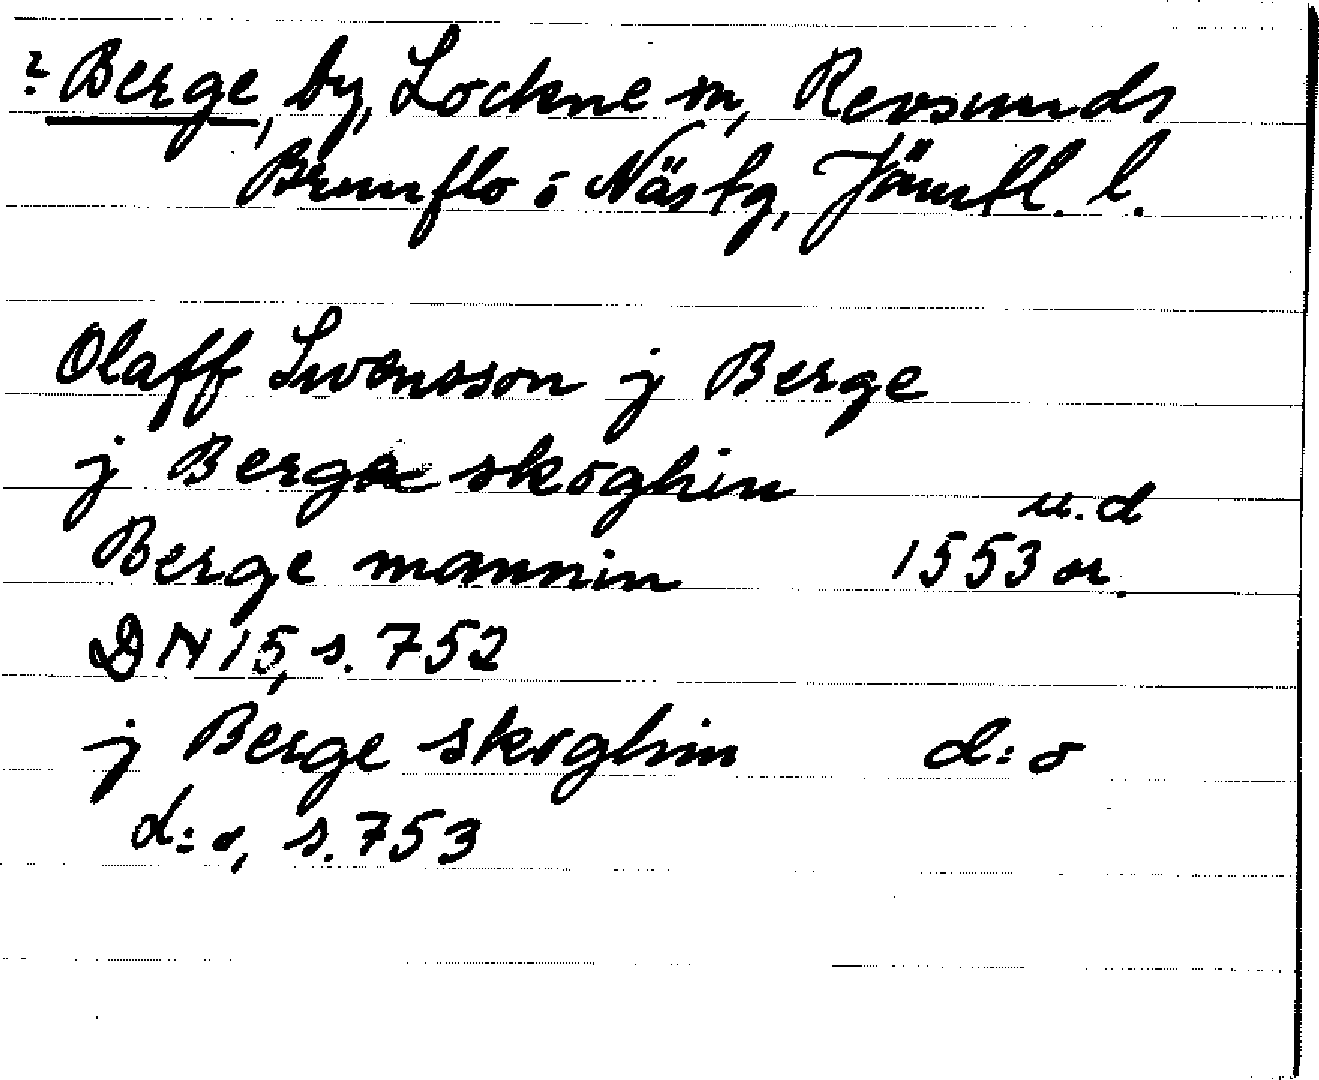 ? Berge, by, Lockne sn, Revsunds
Brunflo o Näs tg, Jämtl. l.
Olaff Swensson j Berge
j Berge skoghin
u. d
Berge mannin 1553 or.
DN 15, s. 752
j Berge skoghin d:o
d:o, s. 753